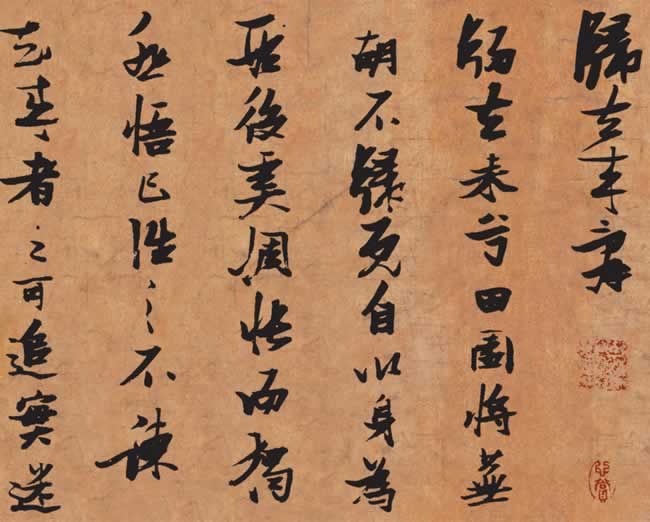 歸去來辭
歸去來兮田園將蕪
胡不歸既自以身為
形役奚惆悵而獨
悲悟已往之不諫
知來者之可追實迷